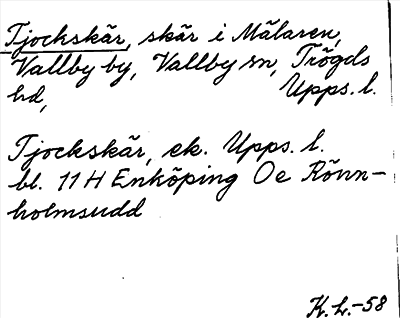 Tjockskär, skär i Mälaren,
Vallby by, Vallby sn, Trögds
hd, Upps. l.
Tjockskär, ek. Upps. l.
bl. 11 H Enköping Oe Rönn-
holmsudd
K.L.-58